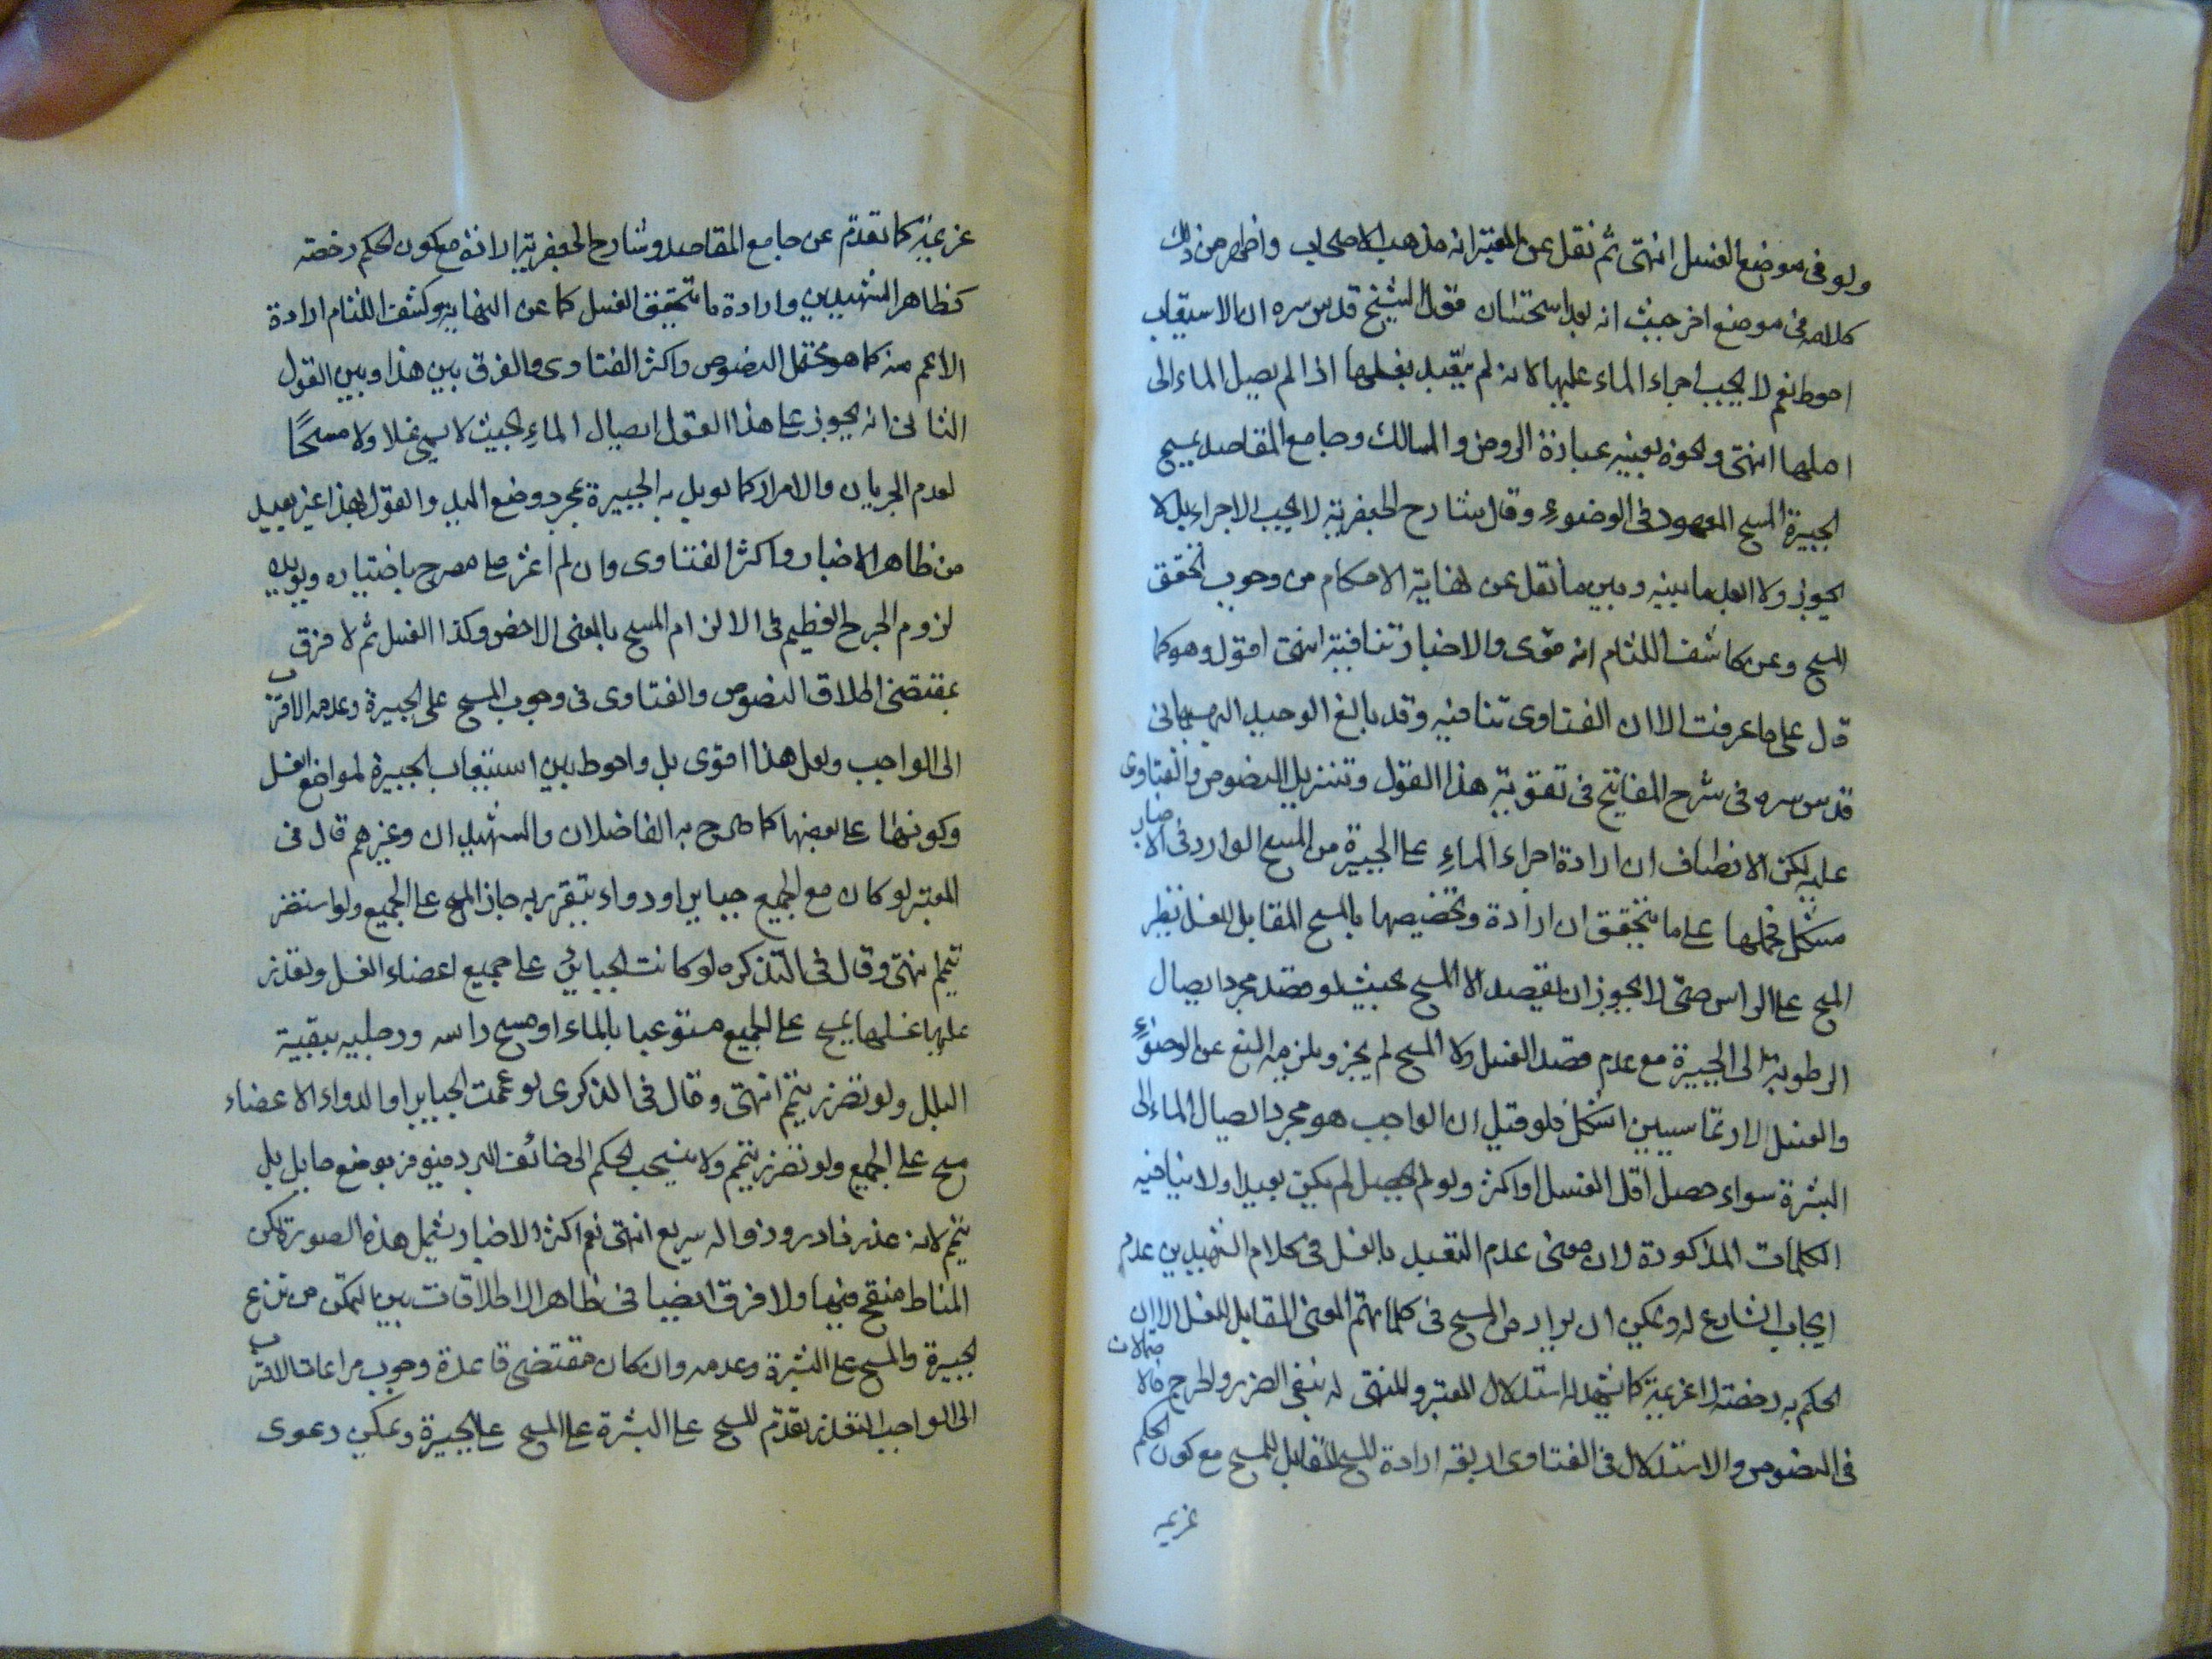 ولو في موضع الغسل انتهى ثم نقل عن المعتبر انه مذهب الاصحاب واظهر من ذلك
كلامه في موضع اخر حيث انه بعد استحسان قول الشيخ قدس سره ان الاستيعاب
احوط نعم لا يجب اجراء الماء عليها لانه لم يتعبد بغسلها اذا لم يصل الماء الى
اصلها انتهى ونحوه بعينه عبارة الروض والمسالك وجامع المقاصد يمسح
الجبيرة المسح المعهود في الوضوء وقال شارح الجعفرية لا يجب الاجراء بل لا
يجوز ولا العبد ما بينه وبين ما نقل عن نهاية الاحكام من وجوب تحقق
المسح وعن كاشف اللثام انه قوى والاخبار تنافيه انتهى اقول وهو كما
قال على ما عرفت الا ان الفتاوى تنافيه وقد بالغ الوحيد البهبهاني
قدس سره في شرح المفاتيح في تقوية هذا القول وتنزيل النصوص والفتاوى
عليه لكن الانصاف ان ارادة اجراء الماء على الجبيرة من المسح الوارد في الاخبار
مشكل فحملها على ما يتحقق ان ارادة وتخصيصها بالمسح المقابل للغسل نظير
المسح على الراس حتى لا يجوز ان يقصد الا المسح بحيث لو قصد مجرد ايصال
الرطوبة الى الجبيرة مع عدم قصد الغسل ولا المسح لم يجز ويلزمه المنع عن الوضوء
والغسل الارتماسيين اشكل فلو قيل ان الواجب هو مجرد ايصال الماء الى
البشرة سواء حصل اقل الغسل او اكثر ولو لم يحصل لم يكن بعيدا ولا ينافيه
الكلمات المذكورة لان معنى عدم التعبد بالغسل في كلام الشهيدين عدم
ايجاب الشارع له ويمكن ان يراد من المسح في كلماتهم المعنى المقابل للغسل الا ان
الحكم به رخصة لا عزيمة كما يشهد له استدلال المعتبر والمنتهى له بنفي الضرر والحرج فالاحتمالات
في النصوص والاستدلال في الفتاوى اربعة ارادة المسح المقابل للمسح مع كون الحكم
عزيمه
عزيمة كما تقدم عن جامع المقاصد وشارح الجعفرية الارادته مع كون الحكم رخصة
كظاهر الشهيدين وارادة ما تحقق الغسل كما عن النهاية وكشف اللثام ارادة
الاعم منه كما هو محتمل النصوص واكثر الفتاوى والفرق بين هذا وبين القول
الثاني انه يجوز على هذا القول ايصال الماء بحيث لا يسمى غسلا ولا مسحًا
لعدم الجريان والامرار كما لو بل به الجبيرة بمجرد وضع اليد والقول بهذا غير بعيد
من ظاهر الاخبار واكثر الفتاوى وان لم اعثر على مصرح باختياره ويؤيده
لزوم الحرج العظيم في الالزام المسح بالمعنى الاخص وكذا الغسل ثم لا فرق
بمقتضى اطلاق النصوص والفتاوى في وجوب المسح على الجبيرة وعدمه الاقرب
الى الواجب ولعل هذا اقوى بل واحوط بين استيعاب الجبيرة لمواضع الغسل
وكونها على بعضها كما صرح به الفاضلان والشهيدان وغيرهم قال في
المعتبر لو كان مع الجميع جباير او دواء يتضرر به جاز المسح على الجميع ولو استضر
تيمم انتهى وقال في التذكره لو كانت الجبائر على جميع اعضاء الغسل وتعذر
عليها غسلها يمسح على الجميع مستوعبا بالماء او مسح راسه ورجليه ببقية
البلل ولو تضرر تيمم انتهى وقال في الذكرى لو عمت الجباير او الدواء الاعضاء
مسح على الجميع ولو تضرر تيمم ولا ينسحب الحكم الى خائف البرد فيؤمر بوضع حايل بل
يتيمم لانه عذر نادر وزواله سريع انتهى نعم اكثر الاخبار يشمل هذه الصورة لكن
المناط منقح فيها ولا فرق ايضا في ظاهر الاطلاقات بين التمكن من نزع
الجبيرة والمسح على البشرة وعدمه وان كان مقتضى قاعدة وجوب مراعات الاقرب
الى الواجب المتعذر تقدم المسح على البشرة على المسح على الجبيرة ويمكن دعوى